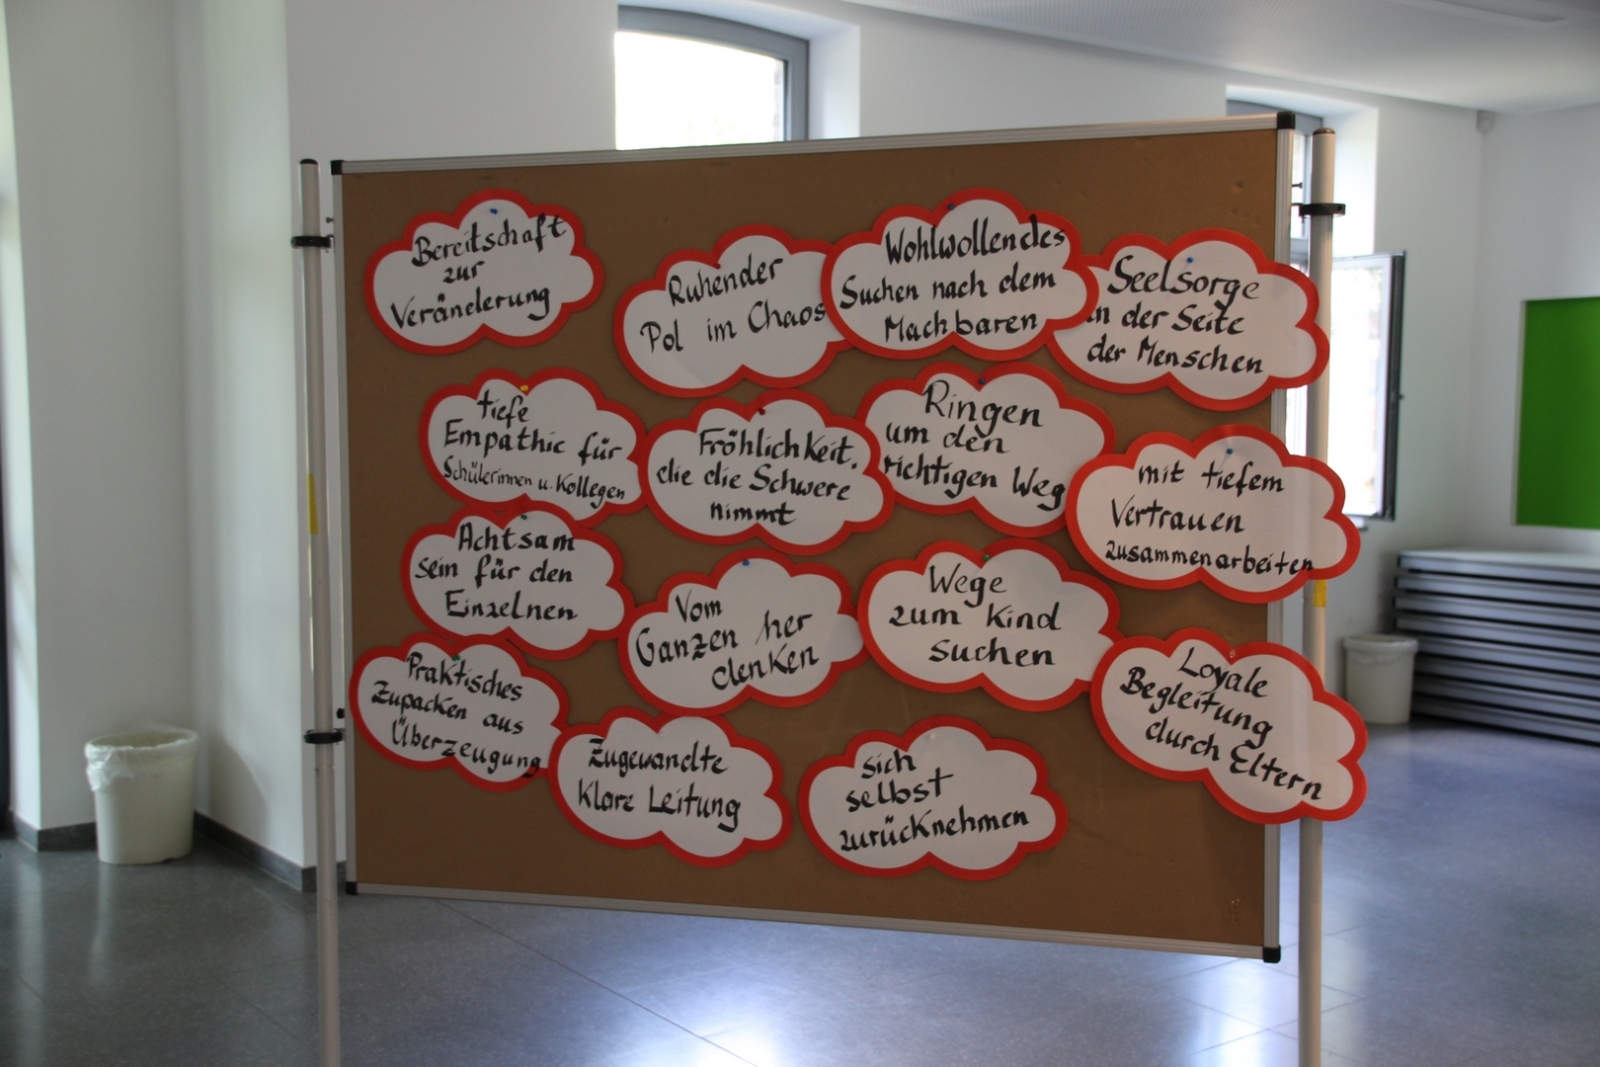 Bereitschaft
zur
Veränderung
Ruhender
Pol im Chaos
Wohlwollendes
Suchen nach dem
Machbaren
Seelsorge
an der Seite
der Menschen
tiefe
Empathie für
Schülerinnen u. Kollegen
Fröhlichkeit,
die die Schwere
nimmt
Ringen
um den
richtigen Weg
mit tiefem
Vertrauen
zusammenarbeiten
Achtsam
sein für den
Einzelnen
Vom
Ganzen her
denken
Wege
zum Kind
suchen
Praktisches
Zupacken aus
Überzeugung
Zugewandte
Klare Leitung
sich
selbst
zurücknehmen
Loyale
Begleitung
durch Eltern